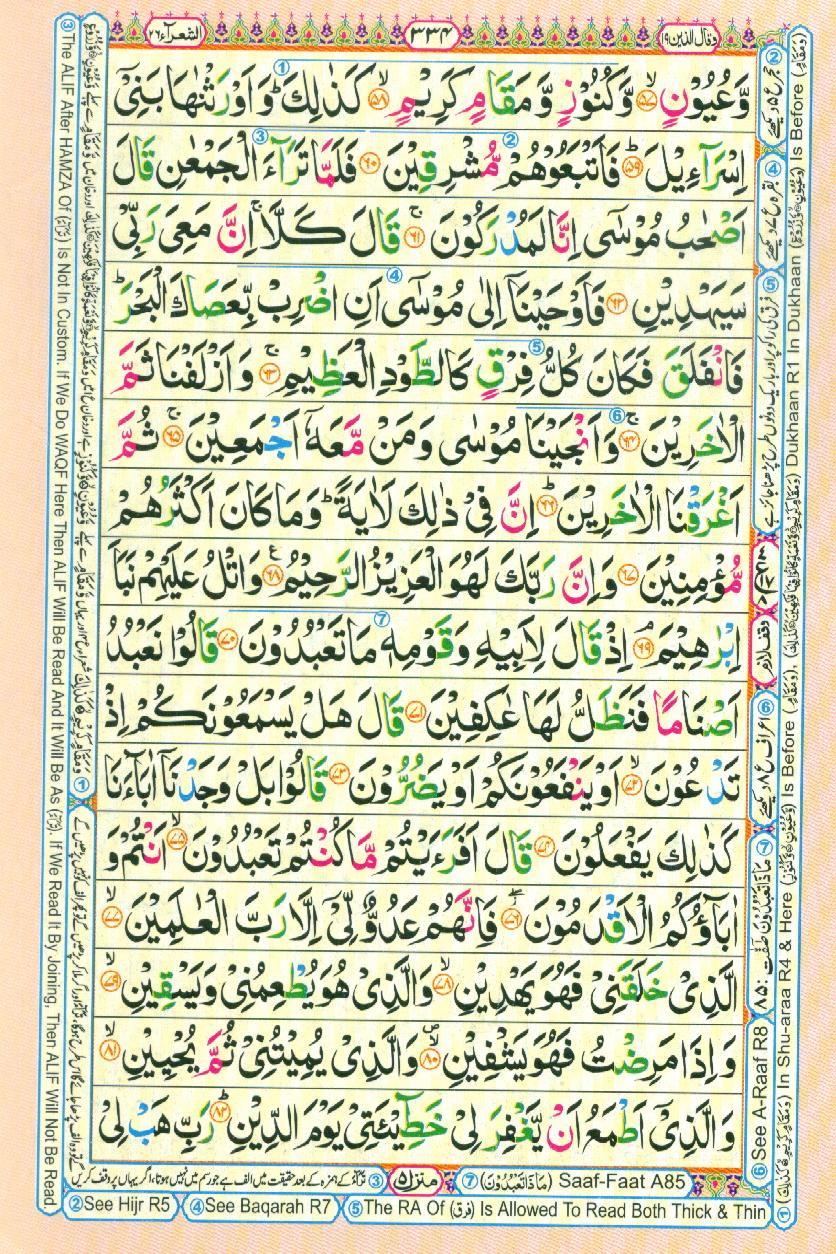 وقال الذين ١٩
٣٣٤
الشعرآء ٢٦
وَّعُيُوۡنٍ ۙ‏ ﴿۵۷﴾ وَّكُنُوۡزٍ وَّمَقَامٍ كَرِيۡمٍ ۙ‏ ﴿۵۸﴾ كَذٰلِكَ ؕ وَاَوۡرَثۡنٰهَا بَنِىۡۤ
اِسۡرَآءِيۡلَ ؕ‏ ﴿۵۹﴾ فَاَتۡبَعُوۡهُمۡ مُّشۡرِقِيۡنَ‏ ﴿۶۰﴾ فَلَمَّا تَرَآءَ الۡجَمۡعٰنِ قَالَ
اَصۡحٰبُ مُوۡسٰٓى اِنَّا لَمُدۡرَكُوۡنَ​ ۚ‏ ﴿۶۱﴾ قَالَ كَلَّا ۚ اِنَّ مَعِىَ رَبِّىۡ
سَيَهۡدِيۡنِ‏ ﴿۶۲﴾ فَاَوۡحَيۡنَاۤ اِلٰى مُوۡسٰٓى اَنِ اضۡرِبْ بِّعَصَاكَ الۡبَحۡرَ​ؕ
فَانۡفَلَقَ فَكَانَ كُلُّ فِرۡقٍ كَالطَّوۡدِ الۡعَظِيۡمِۚ‏ ﴿۶۳﴾ وَاَزۡلَفۡنَا ثَمَّ
الۡاٰخَرِيۡنَ​ۚ‏ ﴿۶۴﴾ وَاَنۡجَيۡنَا مُوۡسٰى وَمَنۡ مَّعَهٗۤ اَجۡمَعِيۡنَ​ۚ‏ ﴿۶۵﴾ ثُمَّ
اَغۡرَقۡنَا الۡاٰخَرِيۡنَ​ؕ‏ ﴿۶۶﴾ اِنَّ فِىۡ ذٰلِكَ لَاٰيَةً ؕ وَمَا كَانَ اَكۡثَرُهُمۡ
مُّؤۡمِنِيۡنَ‏ ﴿۶۷﴾ وَاِنَّ رَبَّكَ لَهُوَ الۡعَزِيۡزُ الرَّحِيۡمُ ‏ ﴿۶۸﴾ وَاتۡلُ عَلَيۡهِمۡ نَبَاَ
اِبۡرٰهِيۡمَ​ۘ‏ ﴿۶۹﴾ اِذۡ قَالَ لِاَبِيۡهِ وَقَوۡمِهٖ مَا تَعۡبُدُوۡنَ‏ ﴿۷۰﴾ قَالُوۡا نَعۡبُدُ
اَصۡنَامًا فَنَظَلُّ لَهَا عٰكِفِيۡنَ‏ ﴿۷۱﴾ قَالَ هَلۡ يَسۡمَعُوۡنَكُمۡ اِذۡ
تَدۡعُوۡنَۙ‏ ﴿۷۲﴾ اَوۡ يَنۡفَعُوۡنَكُمۡ اَوۡ يَضُرُّوۡنَ‏ ﴿۷۳﴾ قَالُوۡا بَلۡ وَجَدۡنَاۤ اٰبَآءَنَا
كَذٰلِكَ يَفۡعَلُوۡنَ‏ ﴿۷۴﴾ قَالَ اَفَرَءَيۡتُمۡ مَّا كُنۡتُمۡ تَعۡبُدُوۡنَۙ‏ ﴿۷۵﴾ اَنۡتُمۡ وَ
اٰبَآؤُكُمُ الۡاَقۡدَمُوۡنَ ‏ ﴿۷۶﴾ فَاِنَّهُمۡ عَدُوٌّ لِّىۡۤ اِلَّا رَبَّ الۡعٰلَمِيۡنَۙ‏ ﴿۷۷﴾
الَّذِىۡ خَلَقَنِىۡ فَهُوَ يَهۡدِيۡنِۙ‏ ﴿۷۸﴾ وَالَّذِىۡ هُوَ يُطۡعِمُنِىۡ وَيَسۡقِيۡنِۙ‏ ﴿۷۹﴾
وَاِذَا مَرِضۡتُ فَهُوَ يَشۡفِيۡنِ ‏ ﴿۸۰﴾ وَالَّذِىۡ يُمِيۡتُنِىۡ ثُمَّ يُحۡيِيۡنِۙ‏ ﴿۸۱﴾
وَالَّذِىۡۤ اَطۡمَعُ اَنۡ يَّغۡفِرَ لِىۡ خَطِٓیْئَتِىۡ يَوۡمَ الدِّيۡنِ ؕ‏ ﴿۸۲﴾ رَبِّ هَبۡ لِىۡ
① (وَمَقَامٍ كَرِيۡمٍ كَذٰلِكَ) In Shu-araa R4 & Here (وَعُيُوۡنٍ وَّكُنُوۡزٍ) Is Before (وَمَقَامٍ), Dukhaan R1 In Dukhaan (وَعُيُوۡنٍ وَّزُرُوۡعٍ) Is Before (وَمَقَامٍ)
② حجر ع ۵ دیکھئے
④ بقرہ ع ۷ دیکھئے
وقف لازم
⑥ اعراف ع ۸ دیکھئے
⑦ مَاذَا تَعۡبُدُوۡنَ صٰفّٰت: ۸۵
⑥ See A-Raaf R8
③ The ALIF After HAMZA Of (تَرَآءَ) Is Not In Custom. If We Do WAQF Here Then ALIF Will Be Read And It Will Be As (تَرَآءَا). If We Read It By Joining, Then ALIF Will Not Be Read.
⑦ (مَاذَا تَعۡبُدُوۡنَ) Saaf-Faat A85
منزل ۵
② See Hijr R5
④ See Baqarah R7
⑤ The RA Of (فرق) Is Allowed To Read Both Thick & Thin